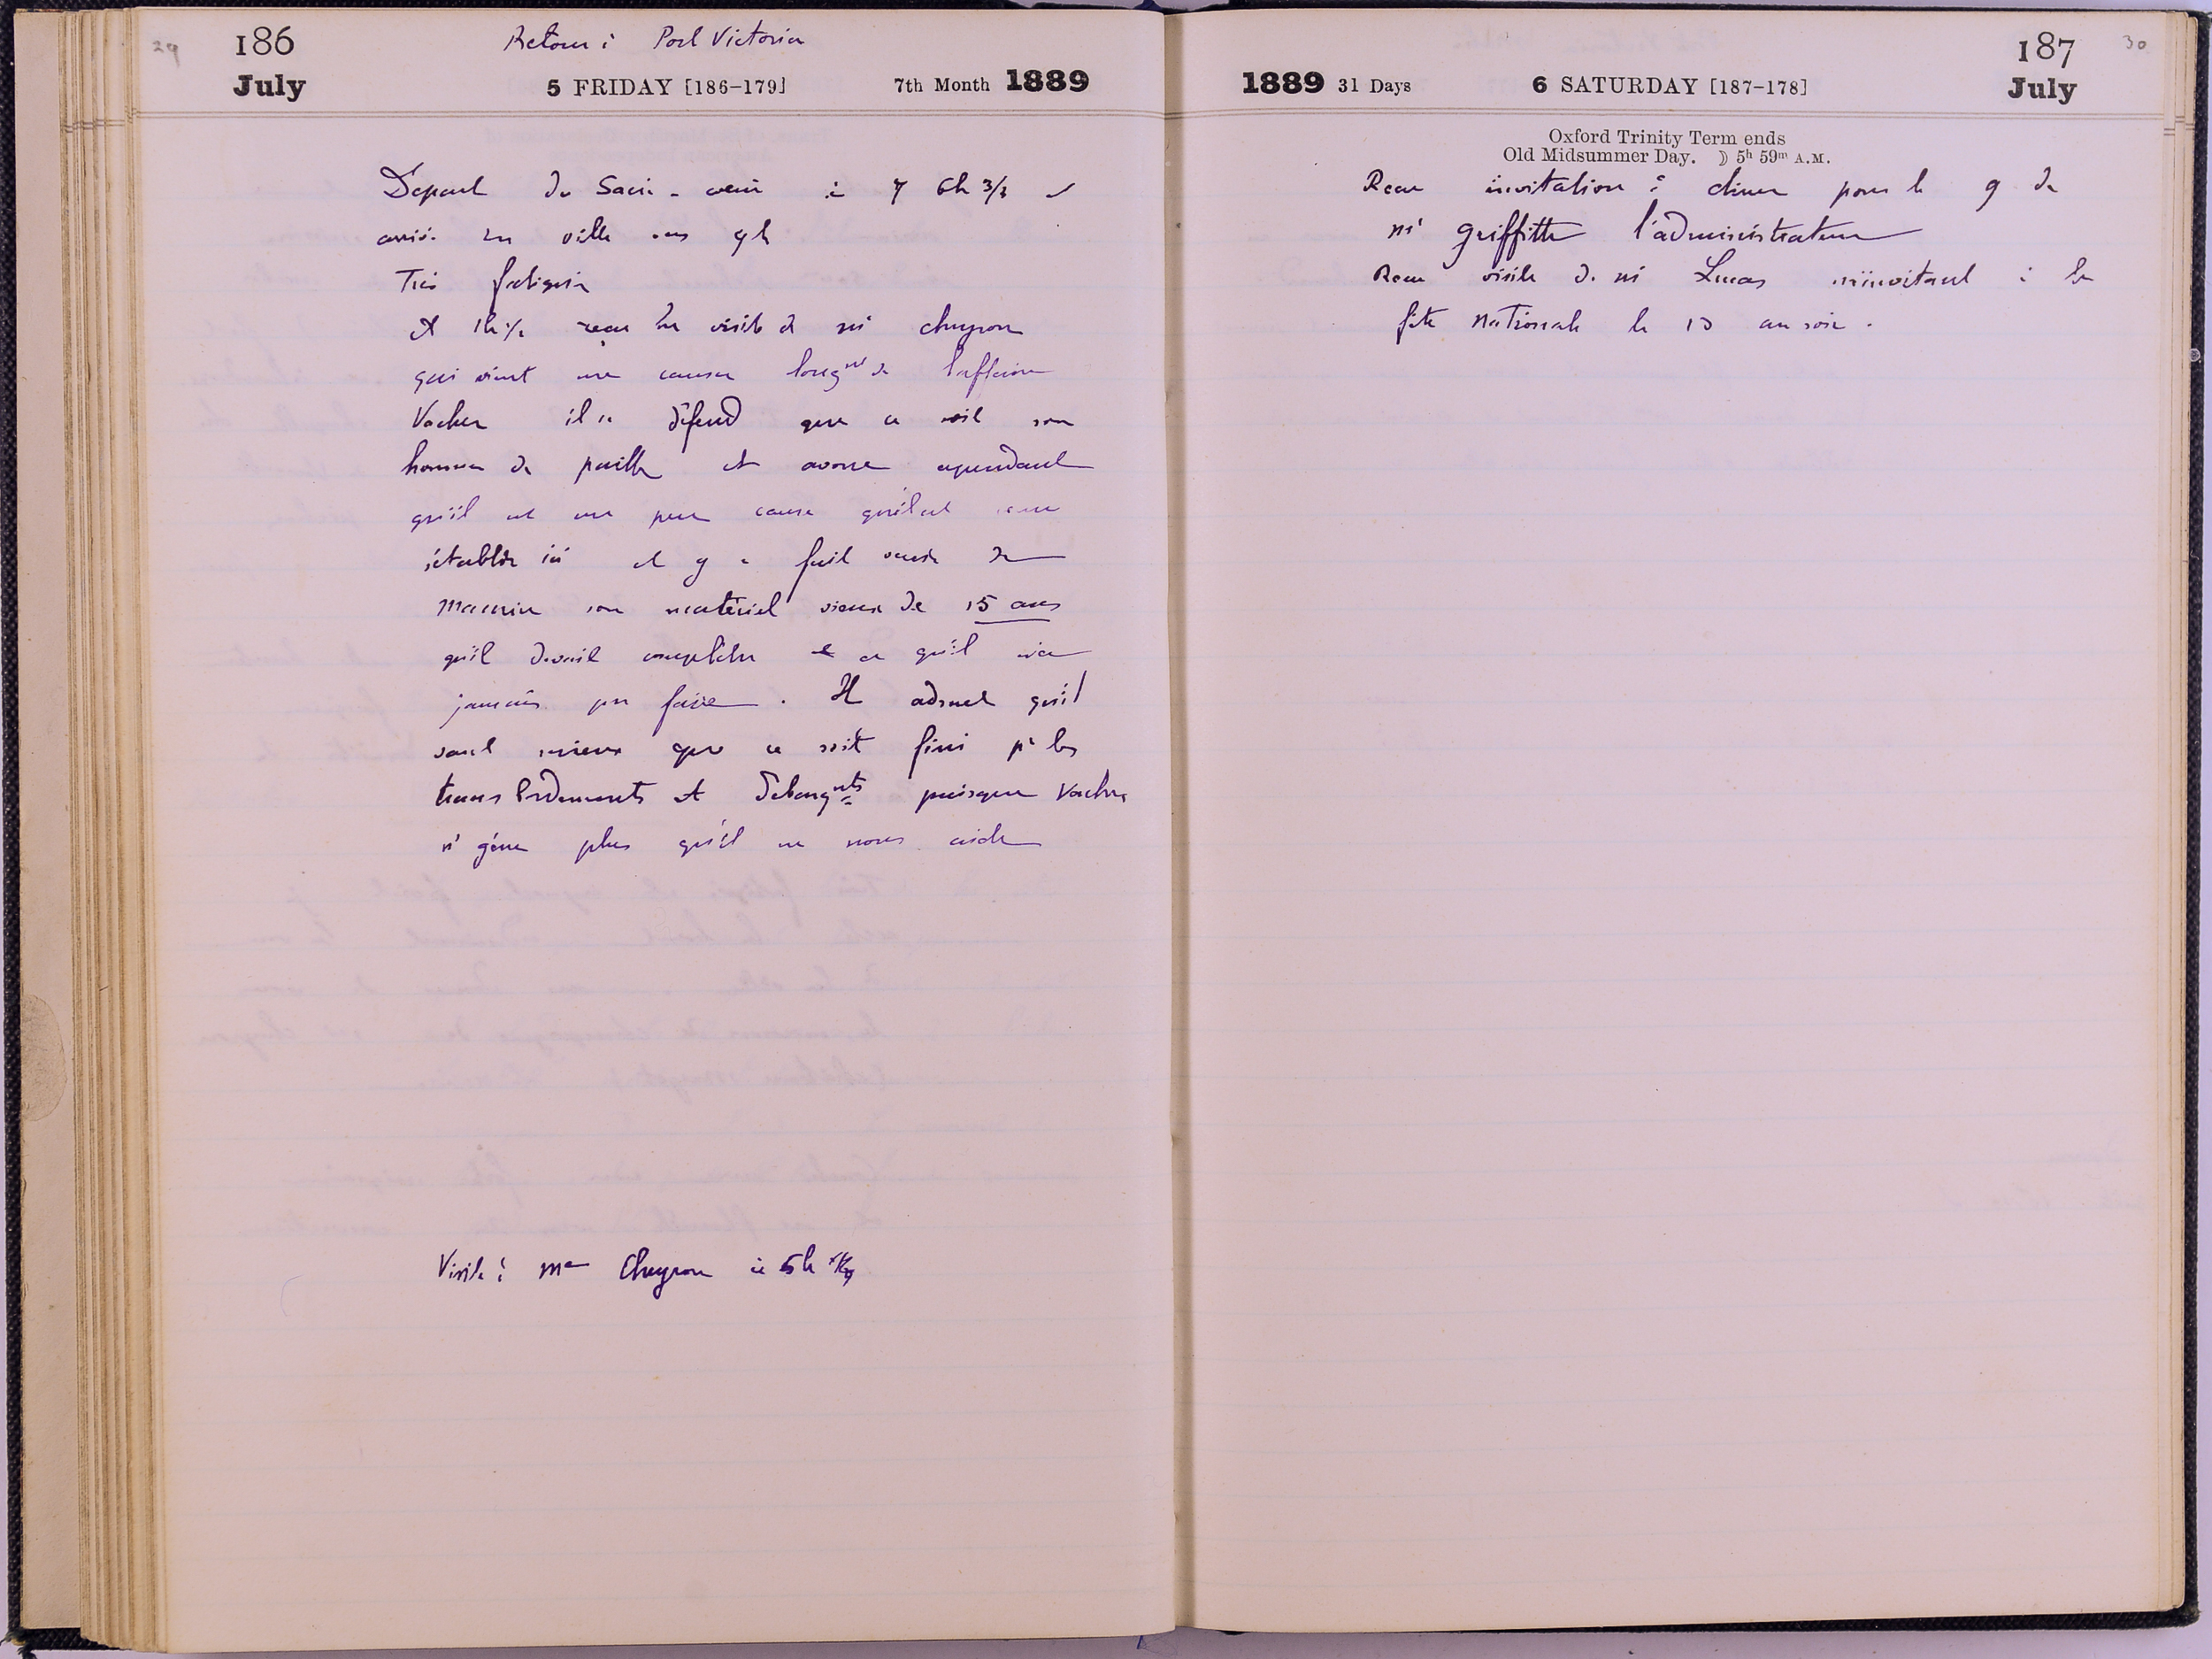 29 186 Retour à Port Victoria
July 5 FRIDAY [186-179] 7th Month 1889
Départ du Sacré-coeur à 7 6h 3/4 et
arrivé en ville vers 9h
Très fatigué
et 1h 1/2 reçu la visite de mr Cheyron
qui vient me causer longnt de l'affaire
Vacher il se défend que ce soit son
homme de paille et avoue cependant
qu'il est un peu cause qu'il est venu
s'établir ici et y a fait venir de
Maurice son matériel vieux de 15 ans
qu'il devait compléter et ce qu'il n'a
jamais pu faire. Il admet qu'il
vaut mieux que ce soit fini pr les
transbordements et débarqnts puisque Vacher
n' gêne plus qu'il ne nous aide
Visite à Me Cheyron à 5h 1/2
187 30
1889 31 Days 6 SATURDAY [187-178] July
Oxford Trinity Term ends
Old Midsummer Day. ☽ 5h 59m A.M.
Reçu invitation à diner pour le 9 de
mr Griffith l'administrateur
Reçu visite de mr Lucas m'invitant à la
fête nationale le 13 au soir.